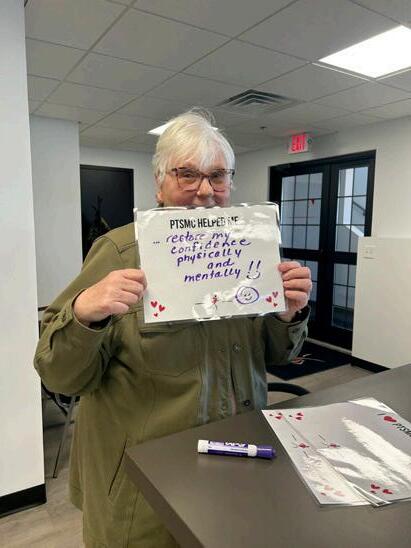 EXIT
PTSMC HELPED ME
... restore my
confidence
physically
and
mentally !!
EXPO
I ❤ PTSMC